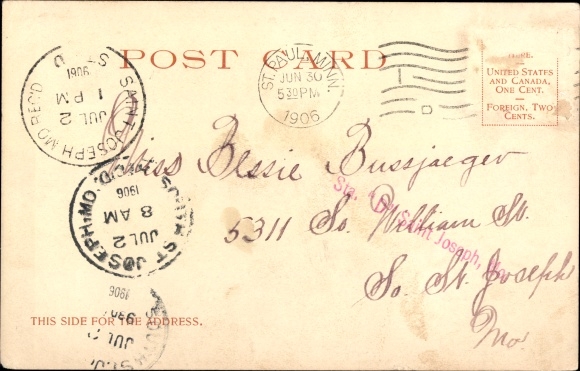 POST CARD
ST. PAUL, MINN.
JUN 30
5 30 PM
1906
UNITED STATES
AND CANADA,
ONE CENT.
FOREIGN, TWO
CENTS.
SAINT JOSEPH MO REC'D
1 PM
JUL 2
1906
Miss Bessie Bussjaeger
5311 So. William St.
So. St. Joseph
Mo.
Sta. "D," Saint Joseph, Mo.
SOUTH ST JOSEPH, MO. REC'D.
JUL 2
8 AM
1906
SOUTH ST. J
JUL
1906
THIS SIDE FOR THE ADDRESS.
D